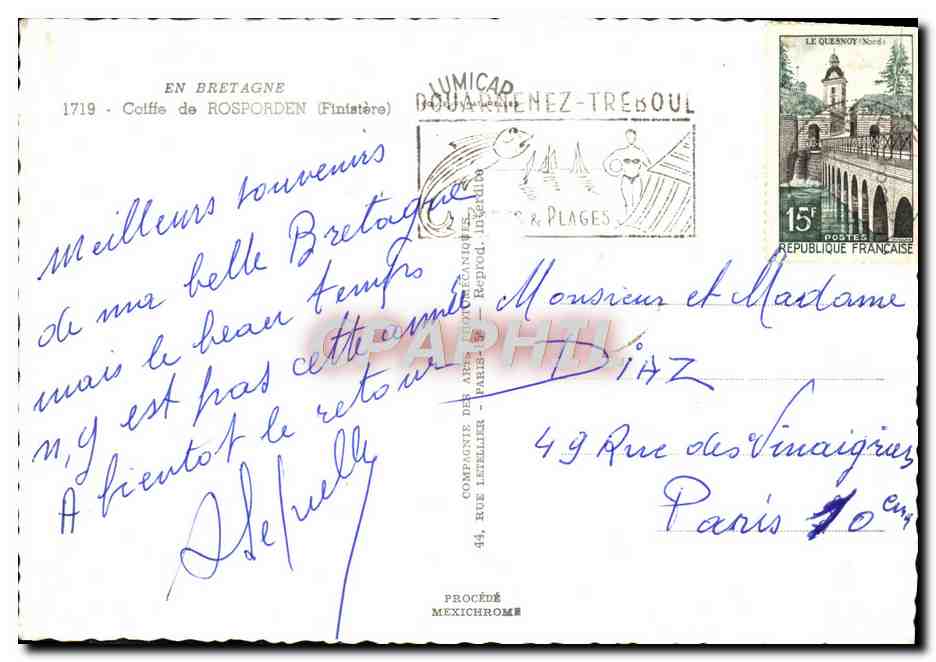 EN BRETAGNE
1719 - Coiffe de ROSPORDEN (Finistère)
Meilleurs souvenirs
de ma belle Bretagne
mais le beau temps
n,y est pas cette année
A bientot le retour
LUMICAP
DOUARNENEZ-TREBOUL
& PLAGES
LE QUESNOY (Nord)
15F
POSTES
REPUBLIQUE FRANÇAISE
Monsieur et Madame
DiAZ
49 Rue des Vinaigriers
Paris 10
COMPAGNIE DES ARTS PHOTOMÉCANIQUES
44, RUE LETELLIER - PARIS-15e - Reprod. interdite
PROCÉDÉ
MEXICHROME
CPAPHIL